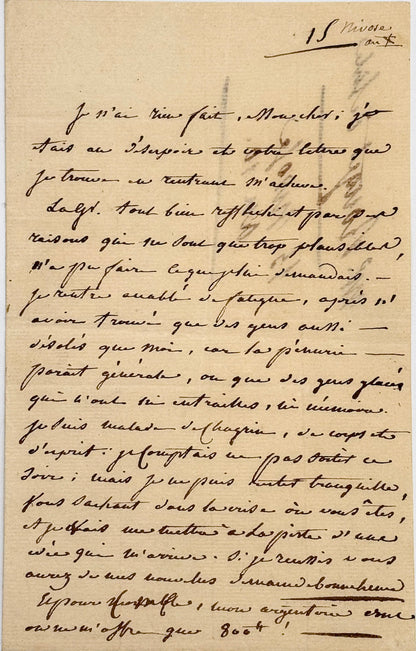 15 Nivose
an X
Je n'ai rien fait, Mon cher; je
tais au désespoir et votre lettre que
je trouve en rentrant m'acheve.
La Gd. tout bien reflechi et par des
raisons qui ne sont que trop plausibles,
n'a pu faire ce que je lui demandais. —
je rentre accablé de fatigue, après n'
avoir trouvé que des gens aussi —
désolés que moi, car la pénurie —
parait générale, ou que des gens glacés
qui n'ont ni entrailles, ni mémoire.
je suis malade de chagrin, de corps et
d'esprit: je comptais ne pas sortir ce
soir; mais je ne puis rester tranquille,
vous sachant dans la crise où vous êtes,
et je vais me mettre à la piste d'une
idée qui m'arrive. Si je reussis vous
aurez de mes nouvelles demain de bonne heure
Et pour comble, mon argenterie
on ne m'offre que 800# !